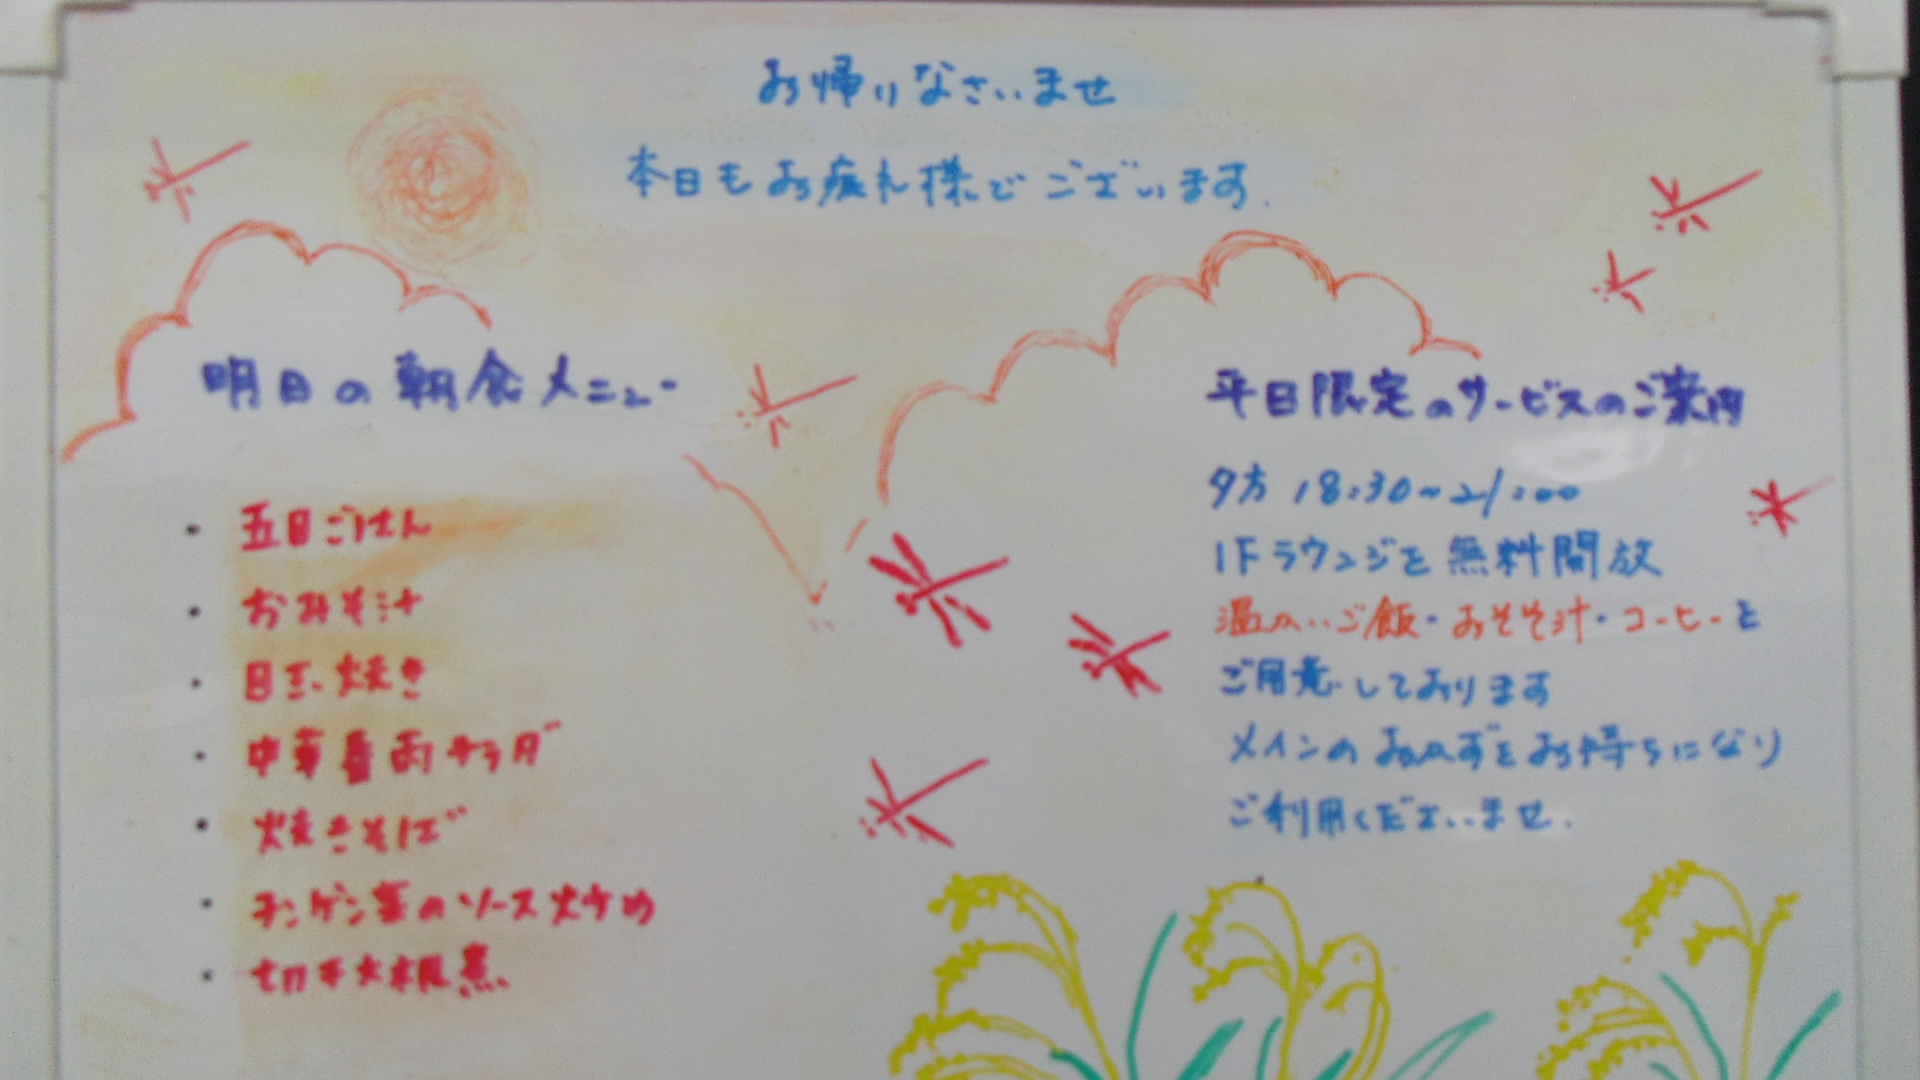 お帰りなさいませ
本日もお疲れ様でございます.
明日の朝食メニュー
・五目ごはん
・おみそ汁
・目玉焼き
・中華春雨サラダ
・焼きそば
・チンゲン菜のソース炒め
・切干大根煮
平日限定のサービスのご案内
夕方 18:30~21:00
1Fラウンジを無料開放
温かいご飯・おみそ汁・コーヒーを
ご用意しております
メインのおかずをお持ちになり
ご利用くださいませ.